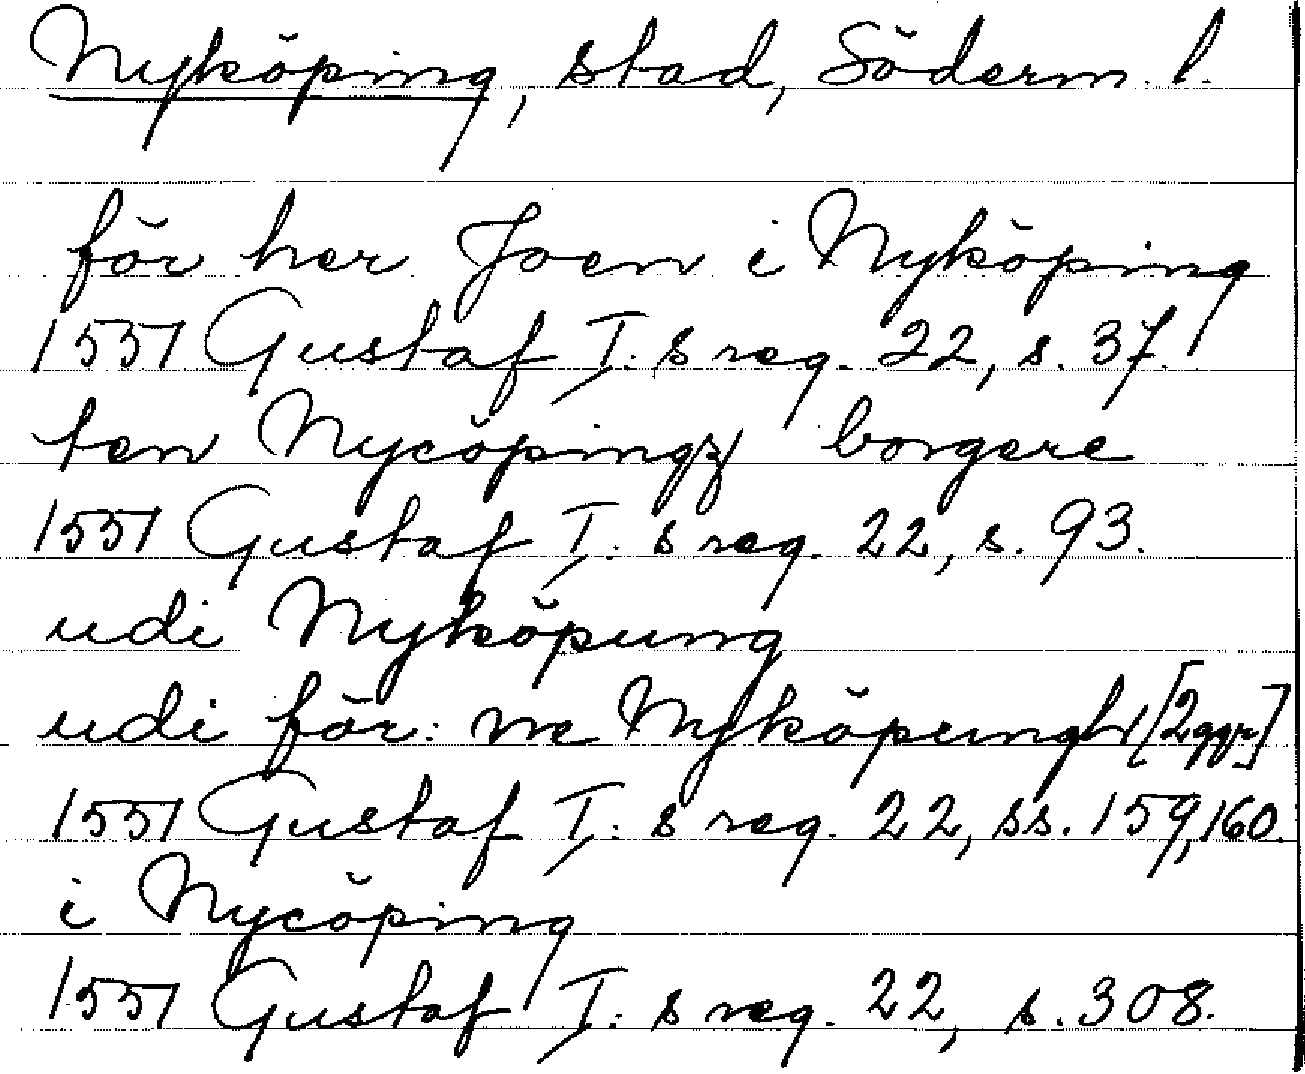 Nyköping, stad, Söderm. l.
för her Joen i Nyköping
1551 Gustaf I:s reg. 22, s. 37.
ten Nycöpingz borgere
1551 Gustaf I:s reg. 22, s. 93.
udi Nyköpung
udi för:ne Nyköpungh [2 ggr]
1551 Gustaf I:s reg. 22, ss. 159, 160.
i Nycöping
1551 Gustaf I:s reg. 22, s. 308.